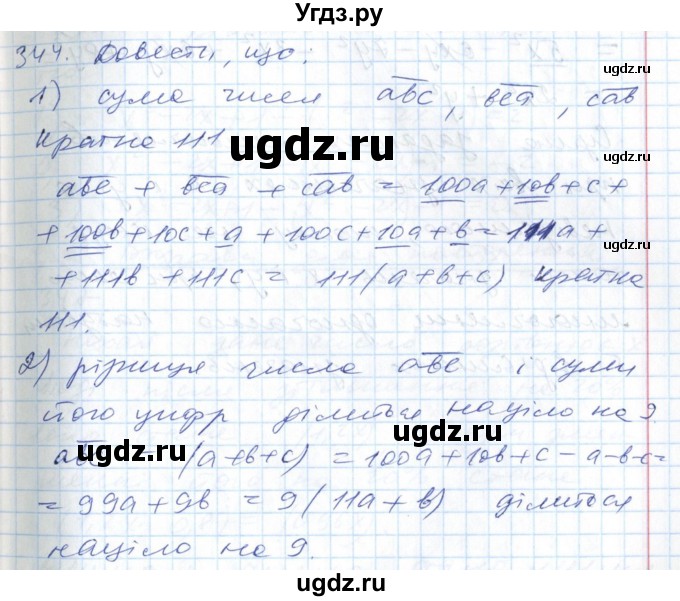 Угдз.ру
344. Довести, що:
1) сума чисел abc, bca, cab
кратна 111
abc + bca + cab = 100a + 10b + c +
+ 100b + 10c + a + 100c + 10a + b = 111a +
+ 111b + 111c = 111(a+b+c) кратна
111.
2) різниця числа abc і суми
його цифр ділиться націло на 9.
abc - (a+b+c) = 100a + 10b + c - a - b - c =
= 99a + 9b = 9(11a + b) ділиться
націло на 9.
ugdz.ru
ugdz.ru
ugdz.ru
ugdz.ru
ugdz.ru
ugdz.ru
ugdz.ru
ugdz.ru